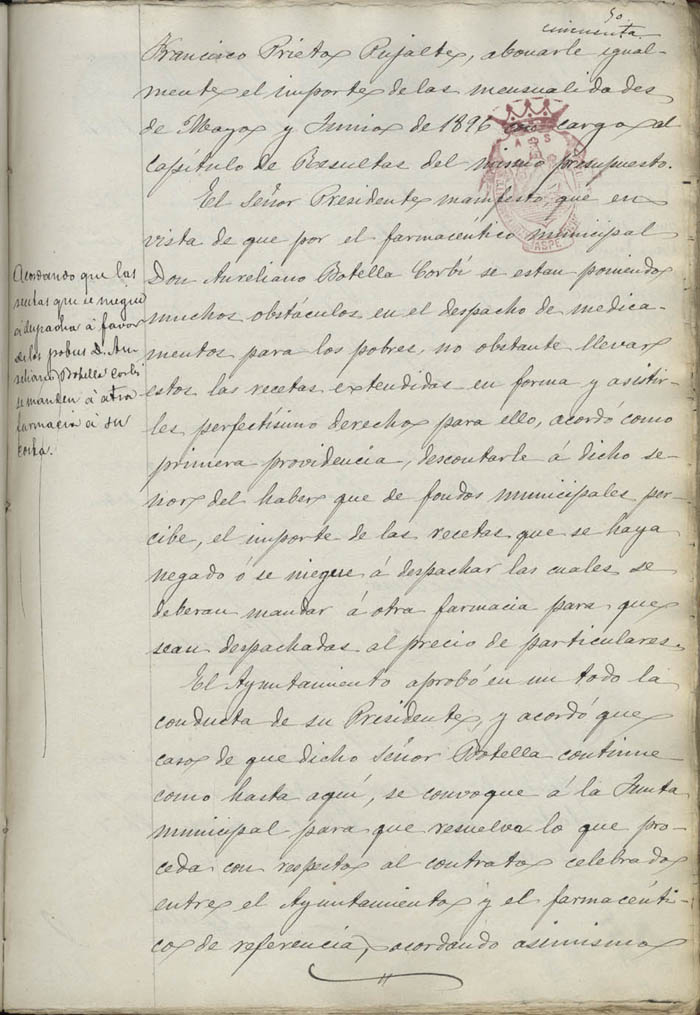 50
cincuenta
Francisco Prieto Pujalte, abonarle igual-
mente el importe de las mensualidades
de Mayo y Junio de 1896 con cargo al
Capítulo de Resultas del mismo prosupuesto.
El Señor Presidente manifestó que en
vista de que por el farmacéutico municipal
Don Aureliano Botella Corbí se estan poniendo
muchos obstáculos en el despacho de medica-
mentos para los pobres, no obstante llevar
estos las recetas extendidas en forma y asistir-
les perfectísimo derecho para ello, acordó como
primera providencia, descontarle á dicho se-
ñor del haber que de fondos municipales per-
cibe, el importe de las recetas que se haya
negado ó se niegue á despachar las cuales se
deberan mandar á otra farmacia para que
sean despachadas al precio de particulares.
El Ayuntamiento aprobó en un todo la
conducta de su Presidente, y acordó que
caso de que dicho Señor Botella continue
como hasta aquí, se convoque á la Junta
municipal para que resuelva lo que pro-
ceda con respecto al contrato celebrado
entre el Ayuntamiento y el farmacéuti-
co de referencia, acordando asimismo
Acordando que las
recetas que se niegue
á despachar á favor
de los pobres D. Au-
reliano Botella Corbí
se manden á otra
farmacia á su
costa.
ASPE